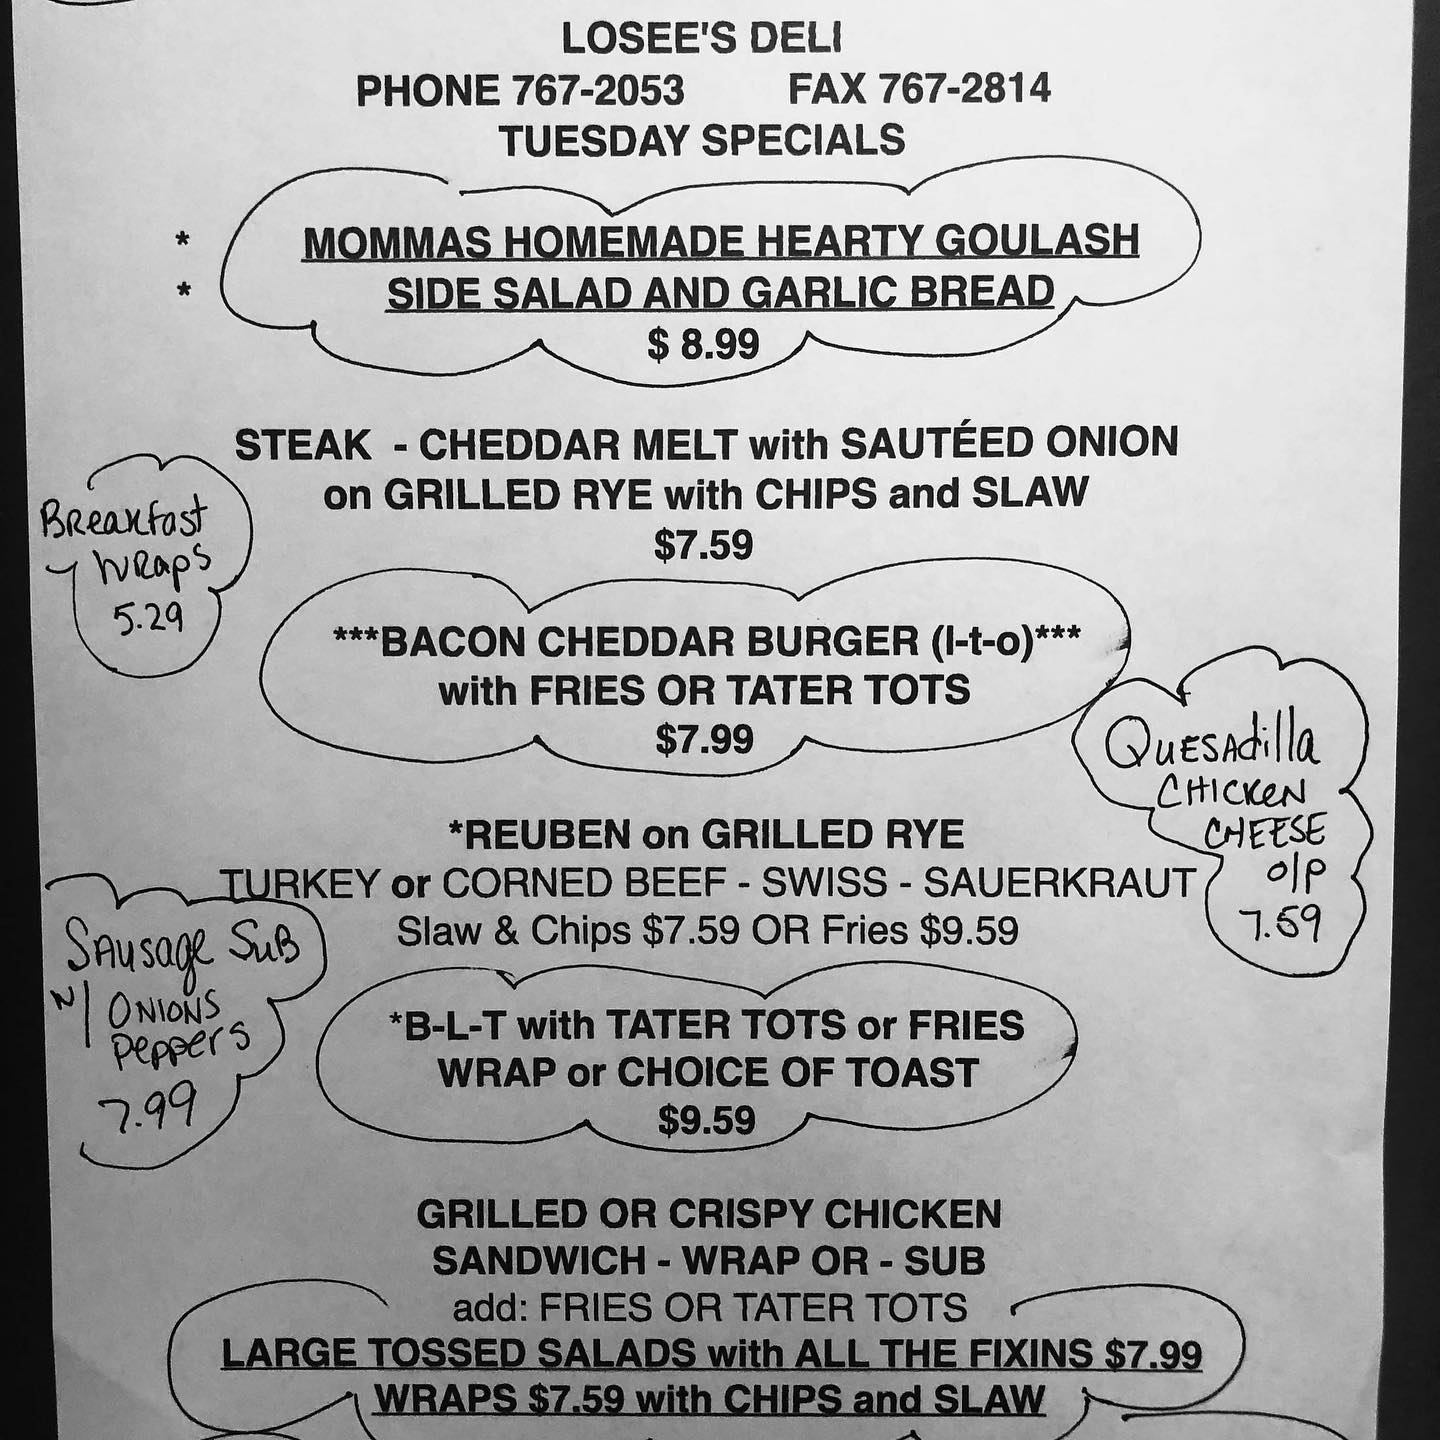 LOSEE'S DELI
PHONE 767-2053 FAX 767-2814
TUESDAY SPECIALS
* MOMMAS HOMEMADE HEARTY GOULASH
* SIDE SALAD AND GARLIC BREAD
$ 8.99
STEAK - CHEDDAR MELT with SAUTÉED ONION
on GRILLED RYE with CHIPS and SLAW
$7.59
Breakfast
Wraps
5.29
***BACON CHEDDAR BURGER (l-t-o)***
with FRIES OR TATER TOTS
$7.99
QUESAdilla
CHICKEN
CHEESE
o/P
7.59
*REUBEN on GRILLED RYE
TURKEY or CORNED BEEF - SWISS - SAUERKRAUT
Slaw & Chips $7.59 OR Fries $9.59
SAusage SuB
w/ ONIONS
peppers
7.99
*B-L-T with TATER TOTS or FRIES
WRAP or CHOICE OF TOAST
$9.59
GRILLED OR CRISPY CHICKEN
SANDWICH - WRAP OR - SUB
add: FRIES OR TATER TOTS
LARGE TOSSED SALADS with ALL THE FIXINS $7.99
WRAPS $7.59 with CHIPS and SLAW